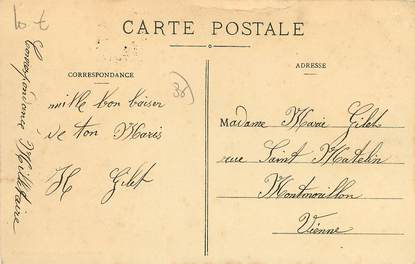 CARTE POSTALE
CORRESPONDANCE
ADRESSE
Correspondance Millitaire
mille bon baiser
de ton Maris
H Gilet
38
Madame Marie Gilet
rue Saint Matelin
Montmorillon
Vienne